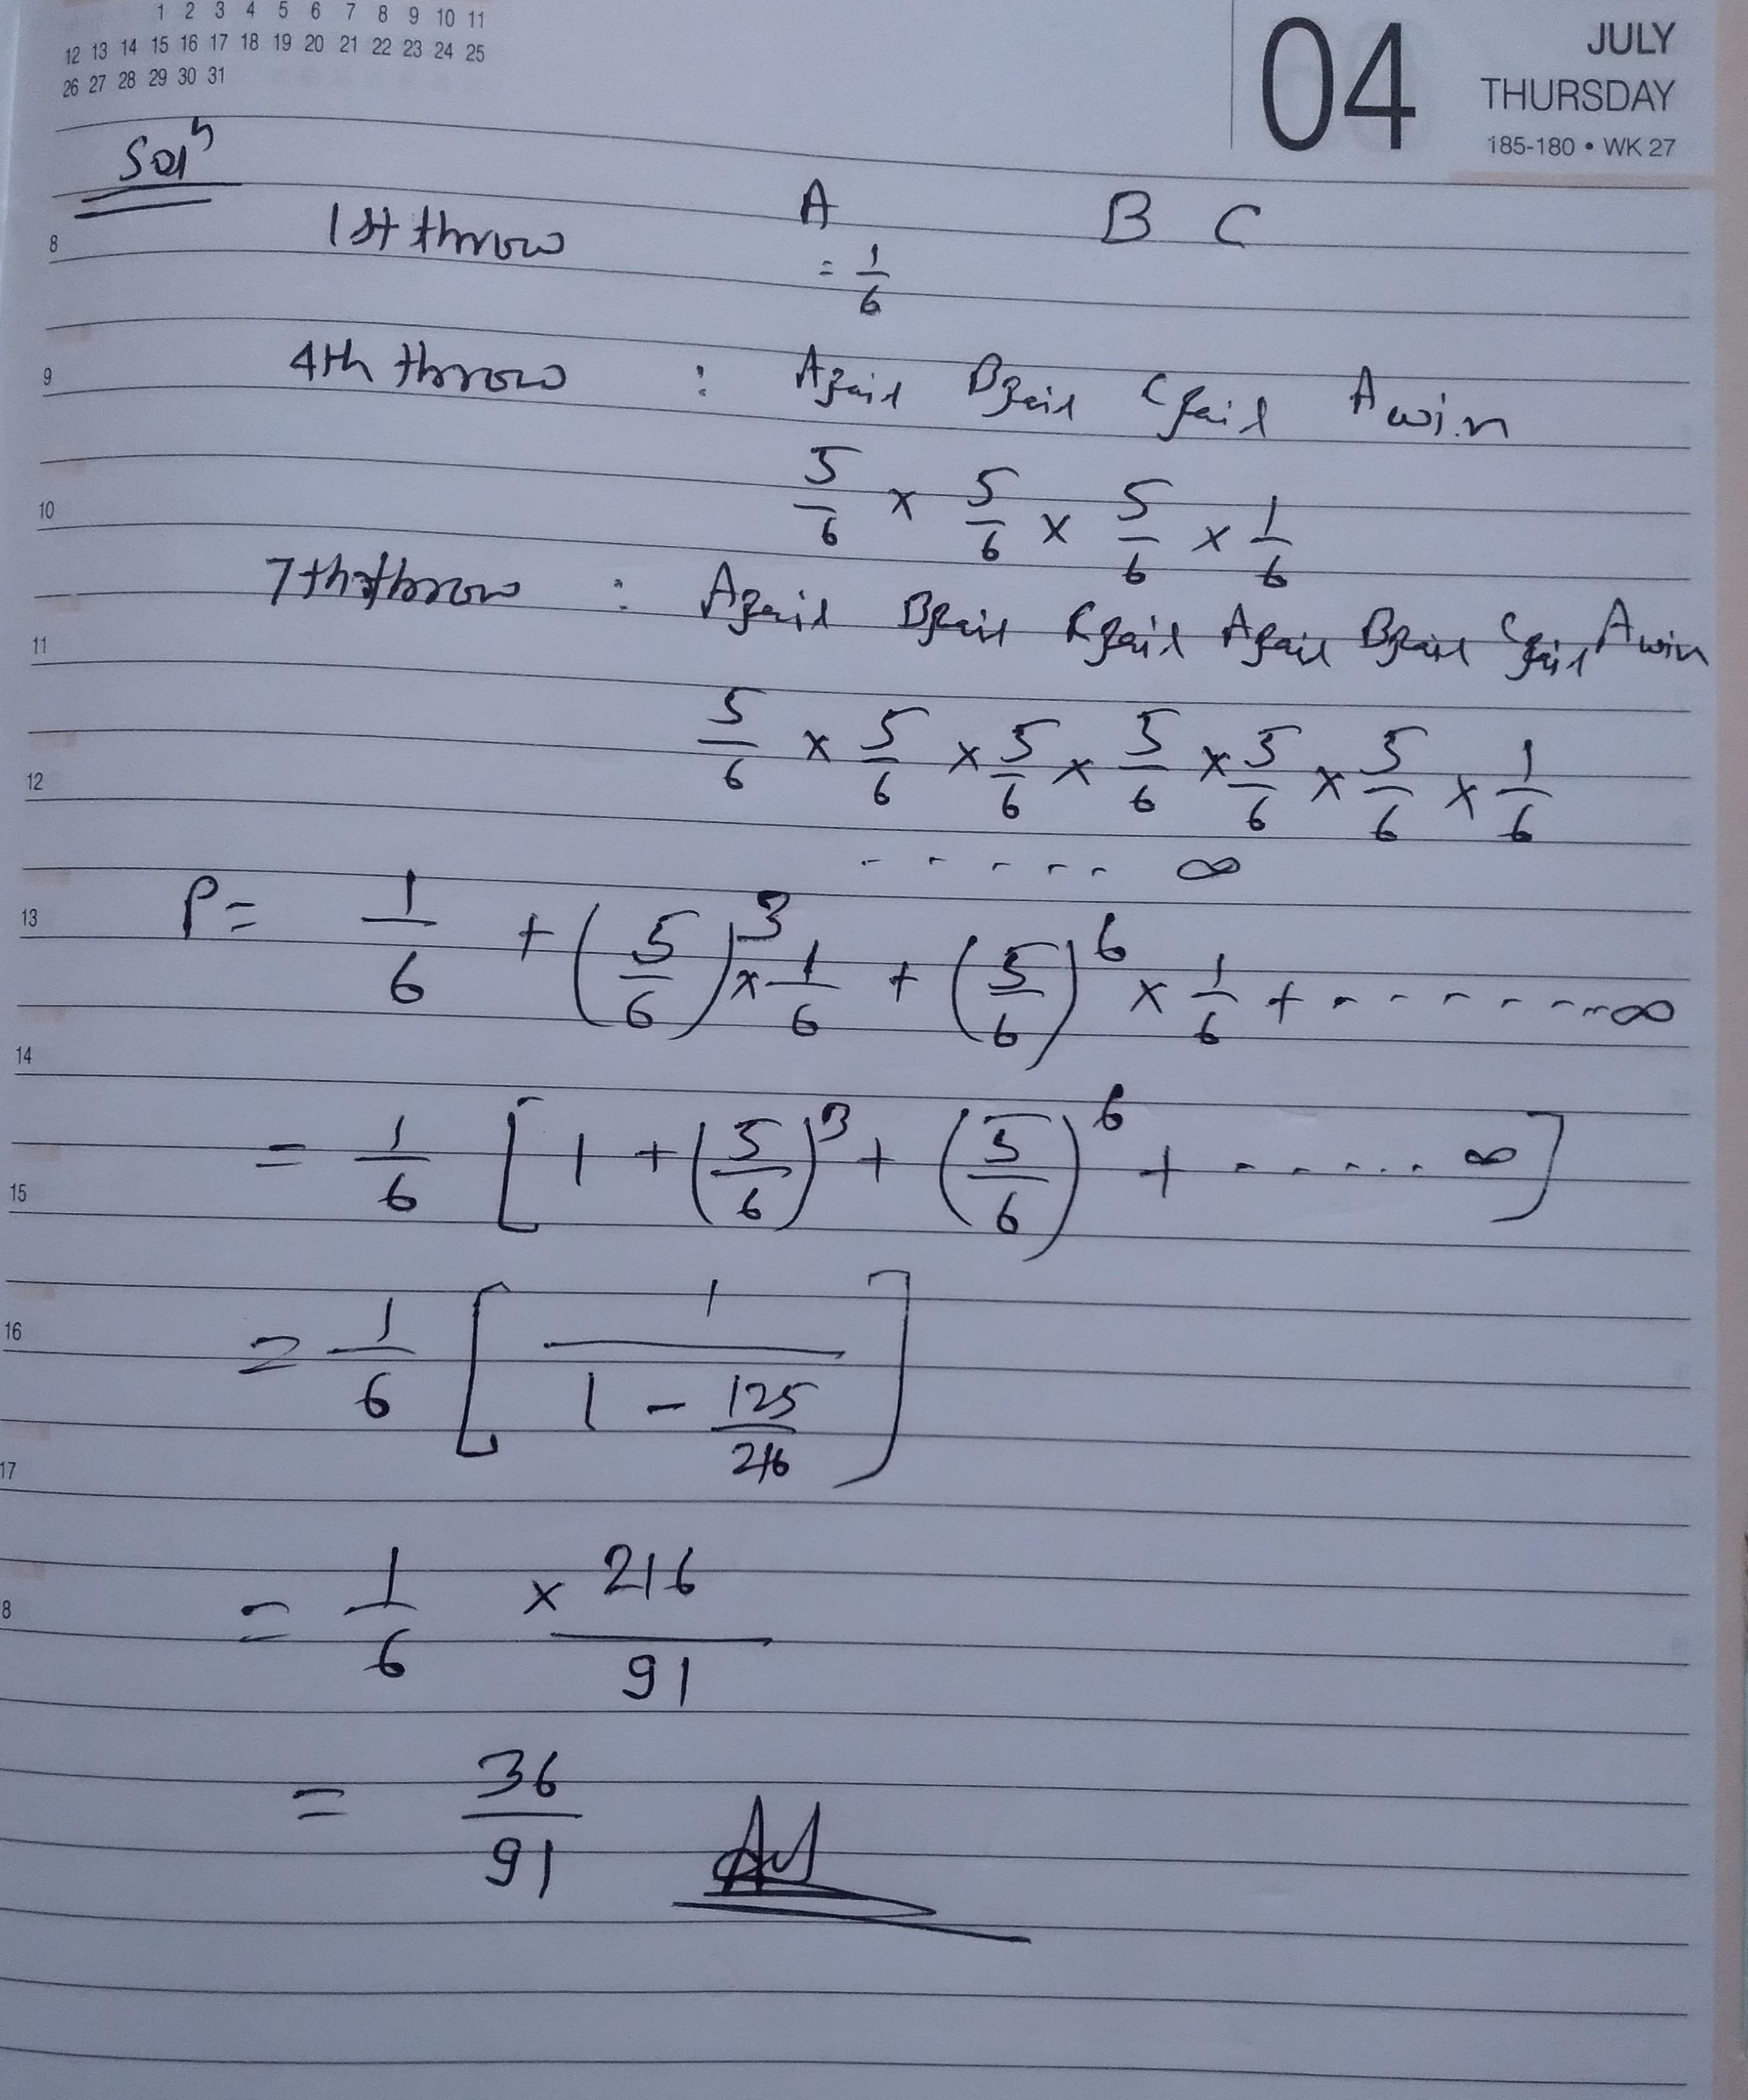 1 2 3 4 5 6 7 8 9 10 11
12 13 14 15 16 17 18 19 20 21 22 23 24 25
26 27 28 29 30 31
04 JULY
THURSDAY
185-180 • WK 27
Solⁿ
A B C
8 1st throw = 1/6
9 4th throw : A fail B fail C fail A win
10 5/6 × 5/6 × 5/6 × 1/6
7th throw : A fail B fail C fail A fail B fail C fail A win
11
12 5/6 × 5/6 × 5/6 × 5/6 × 5/6 × 5/6 × 1/6
- - - - - ∞
13 P = 1/6 + (5/6)^3 × 1/6 + (5/6)^6 × 1/6 + - - - - - - - ∞
14
15 = 1/6 [ 1 + (5/6)^3 + (5/6)^6 + - - - - - ∞ ]
16 = 1/6 [ 1 / (1 - 125/216) ]
17
8 = 1/6 × 216/91
= 36/91 Ans